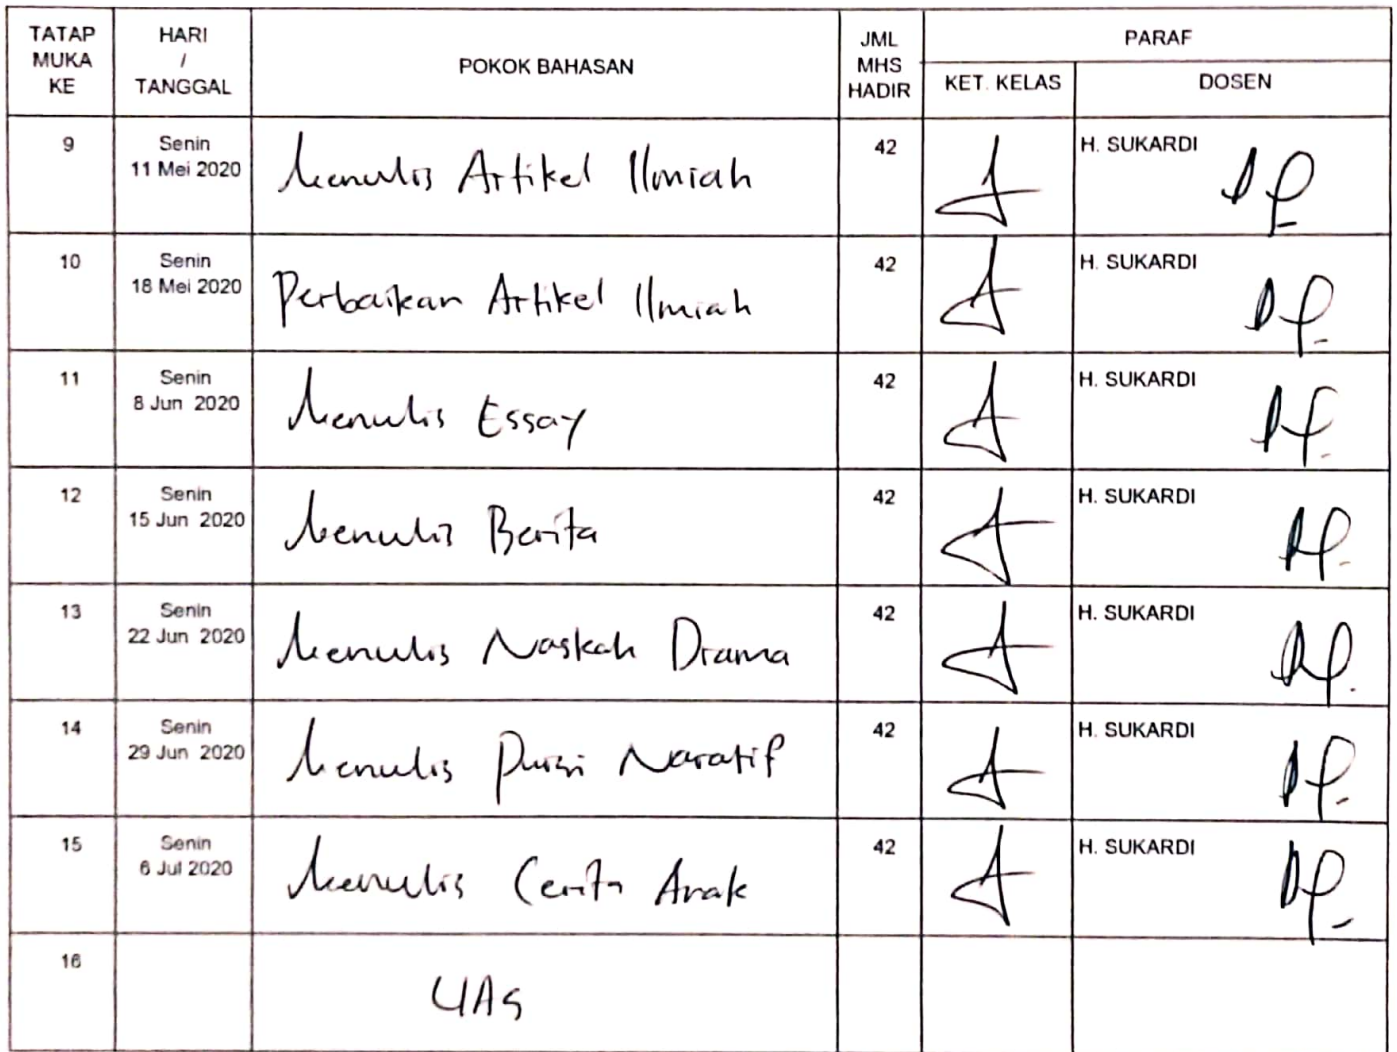 TATAP MUKA KE | HARI / TANGGAL | POKOK BAHASAN | JML MHS HADIR | PARAF
KET. KELAS | DOSEN
9 | Senin 11 Mei 2020 | Menulis Artikel Ilmiah | 42 | H. SUKARDI
10 | Senin 18 Mei 2020 | Perbaikan Artikel Ilmiah | 42 | H. SUKARDI
11 | Senin 8 Jun 2020 | Menulis Essay | 42 | H. SUKARDI
12 | Senin 15 Jun 2020 | Menulis Berita | 42 | H. SUKARDI
13 | Senin 22 Jun 2020 | Menulis Naskah Drama | 42 | H. SUKARDI
14 | Senin 29 Jun 2020 | Menulis Puisi Naratif | 42 | H. SUKARDI
15 | Senin 6 Jul 2020 | Menulis Cerita Anak | 42 | H. SUKARDI
16 | UAS